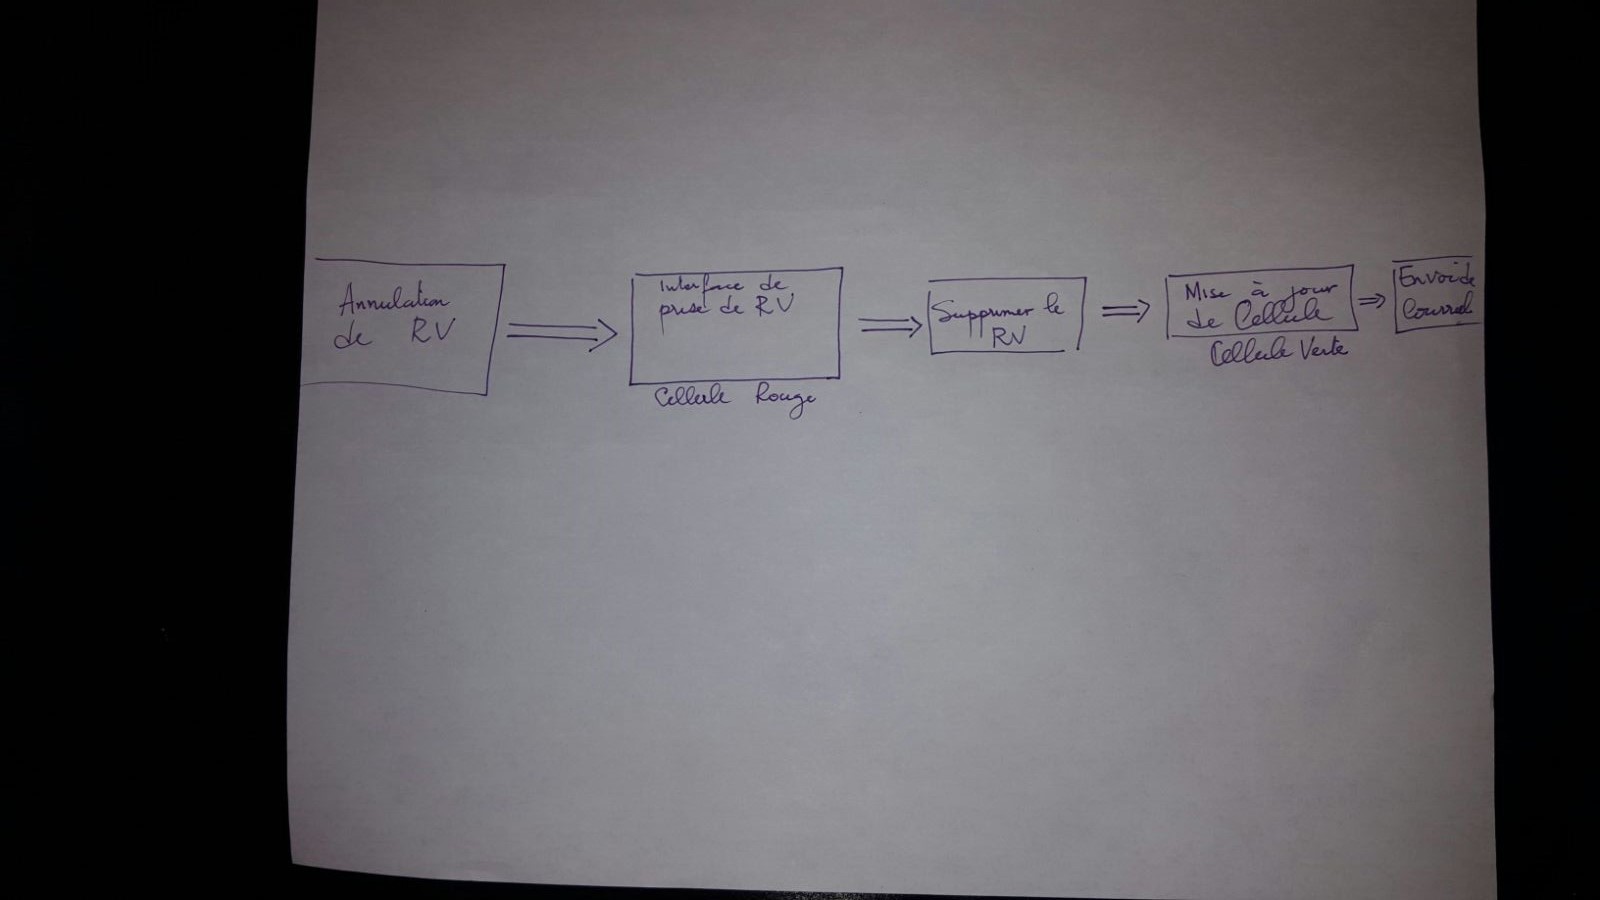 Annulation
de RV
Interface de
prise de RV
Cellule Rouge
Supprimer le
RV
Mise à jour
de Cellule
Cellule Verte
Envoi de
Courriel